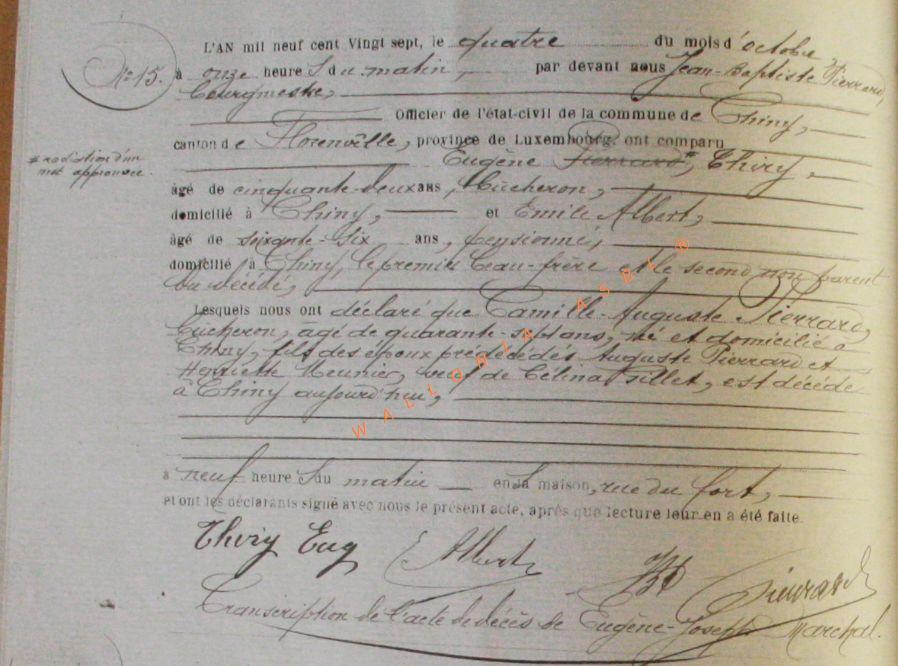 L'AN mil neuf cent Vingt sept, le quatre du mois d'octobre
N° 15.
à onze heure s du matin, par devant nous Jean-Baptiste Pierrard,
Bourgmestre,
Officier de l'état-civil de la commune de Chiny,
canton de Florenville, province de Luxembourg, ont comparu
Eugène Pierrard #, Thiry,
# radiation d'un
mot approuvée.
âgé de cinquante-deux ans, bûcheron,
domicilié à Chiny, et Emile Albert,
âgé de soixante-six ans, pensionné,
domicilié à Chiny, le premier beau-frère et le second non parent
du décédé,
Lesquels nous ont déclaré que Camille-Auguste Pierrard,
bûcheron, âgé de quarante-sept ans, né et domicilié à
Chiny, fils des époux prédécédés Auguste Pierrard et
Henriette Meunier, veuf de Célina Gillet, est décédé
à Chiny aujourd'hui,
à neuf heure s du matin en sa maison, rue du fort,
et ont les déclarants signé avec nous le présent acte, après que lecture leur en a été faite.
Thiry Eug Albert JB Pierrard
Transcription de l'acte de décès de Eugène-Joseph Marchal.
WALLONIA ASBL ©